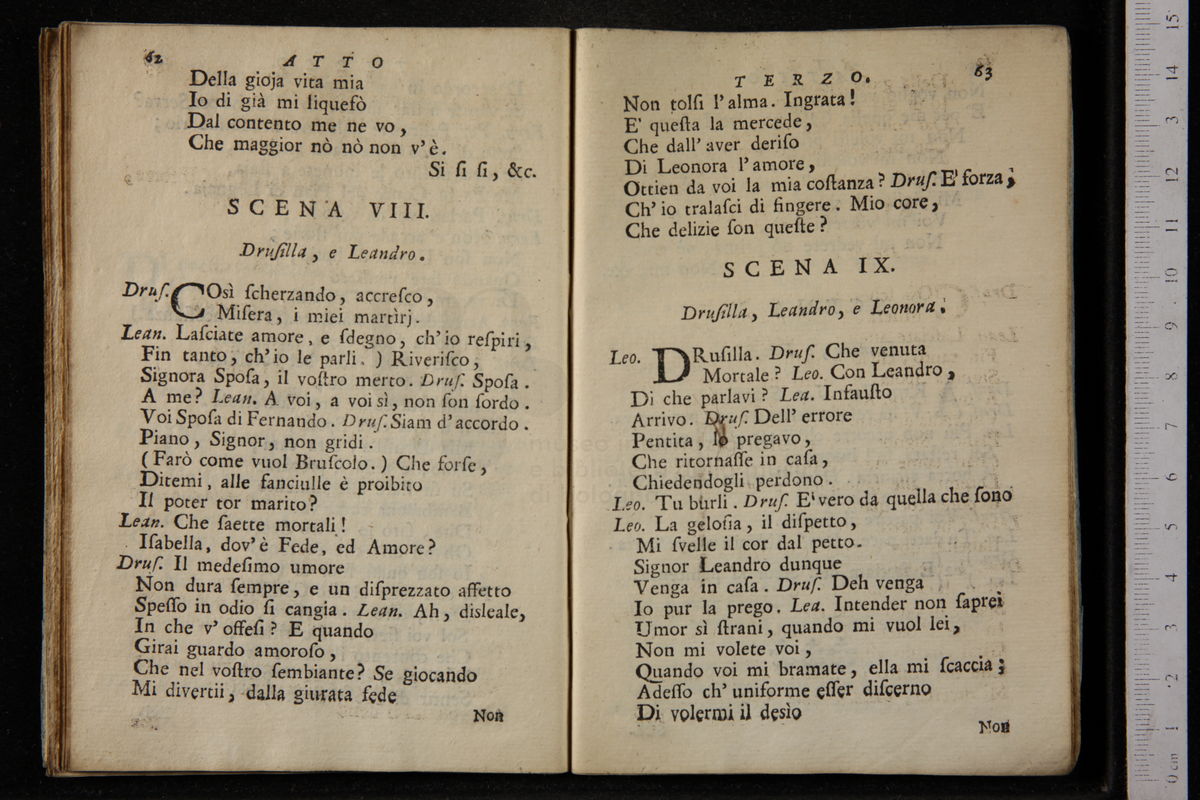 62
ATTO
Della gioja vita mia
Io di già mi liquefò
Dal contento me ne vo,
Che maggior nò nò non v'è.
Si ſi ſi, &c.
SCENA VIII.
Druſilla, e Leandro.
Druſ. COsì ſcherzando, accreſco,
Miſera, i miei martìrj.
Lean. Laſciate amore, e ſdegno, ch'io reſpiri,
Fin tanto, ch'io le parli. ) Riveriſco,
Signora Spoſa, il voſtro merto. Druſ. Spoſa.
A me? Lean. A voi, a voi sì, non ſon ſordo.
Voi Spoſa di Fernando. Druſ. Siam d'accordo.
Piano, Signor, non gridi.
(Farò come vuol Bruſcolo.) Che forſe,
Ditemi, alle fanciulle è proibito
Il poter tor marito?
Lean. Che ſaette mortali!
Iſabella, dov'è Fede, ed Amore?
Druſ. Il medeſimo umore
Non dura ſempre, e un diſprezzato affetto
Speſſo in odio ſi cangia. Lean. Ah, disleale,
In che v'offeſi? E quando
Girai guardo amoroſo,
Che nel voſtro ſembiante? Se giocando
Mi divertii, dalla giurata fede
Non
TERZO.
63
Non tolſi l'alma. Ingrata!
E' queſta la mercede,
Che dall'aver deriſo
Di Leonora l'amore,
Ottien da voi la mia coſtanza? Druſ. E' forza,
Ch'io tralaſci di fingere. Mio core,
Che delizie ſon queſte?
SCENA IX.
Druſilla, Leandro, e Leonora.
Leo. DRuſilla. Druſ. Che venuta
Mortale? Leo. Con Leandro,
Di che parlavi? Lea. Infauſto
Arrivo. Druſ. Dell'errore
Pentita, lo pregavo,
Che ritornaſſe in caſa,
Chiedendogli perdono.
Leo. Tu burli. Druſ. E' vero da quella che ſono
Leo. La geloſia, il diſpetto,
Mi ſvelle il cor dal petto.
Signor Leandro dunque
Venga in caſa. Druſ. Deh venga
Io pur la prego. Lea. Intender non ſaprei
Umor sì ſtrani, quando mi vuol lei,
Non mi volete voi,
Quando voi mi bramate, ella mi ſcaccia;
Adeſſo ch'uniforme eſſer diſcerno
Di volermi il desìo
Non